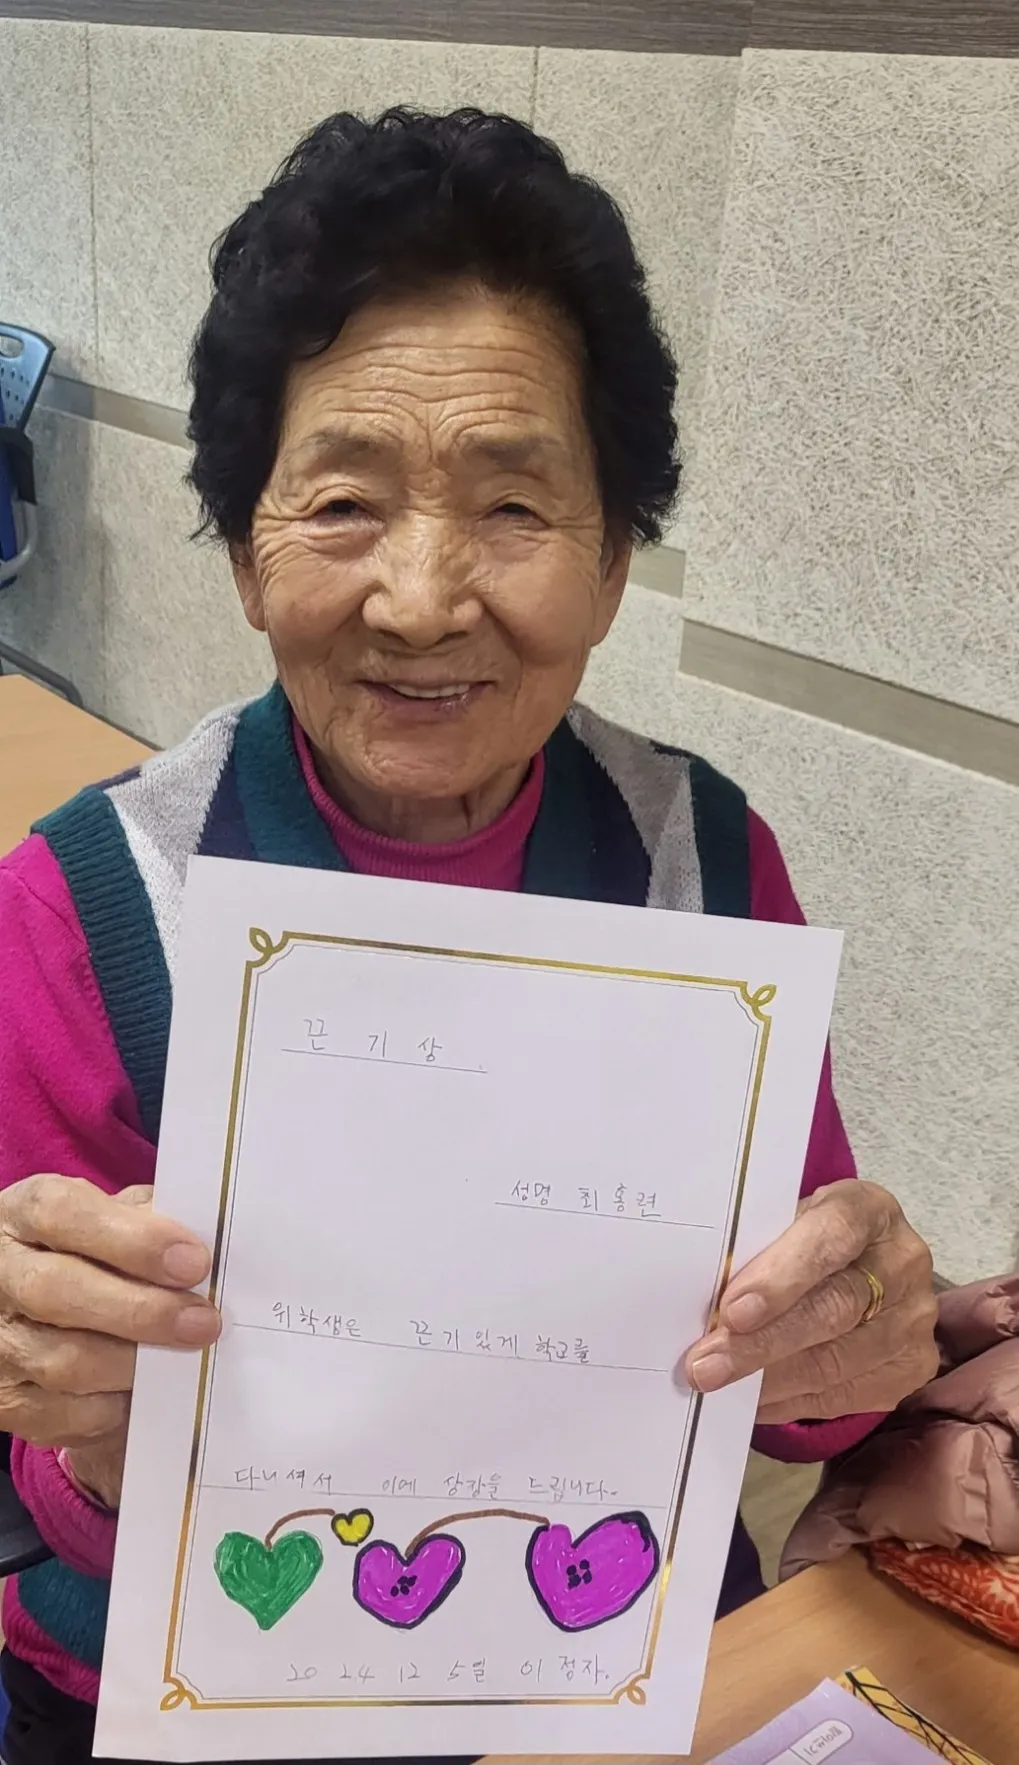 끈기상.
성명 최홍련
위 학생은 끈기있게 학교를
다니셔서 이에 상장을 드립니다.
2024 12 5일 이정자.